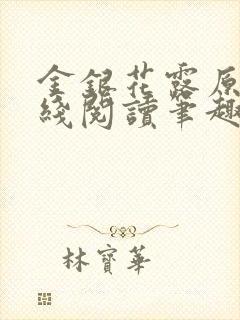 金銀花露原
綫閱讀筆趣
林寶華